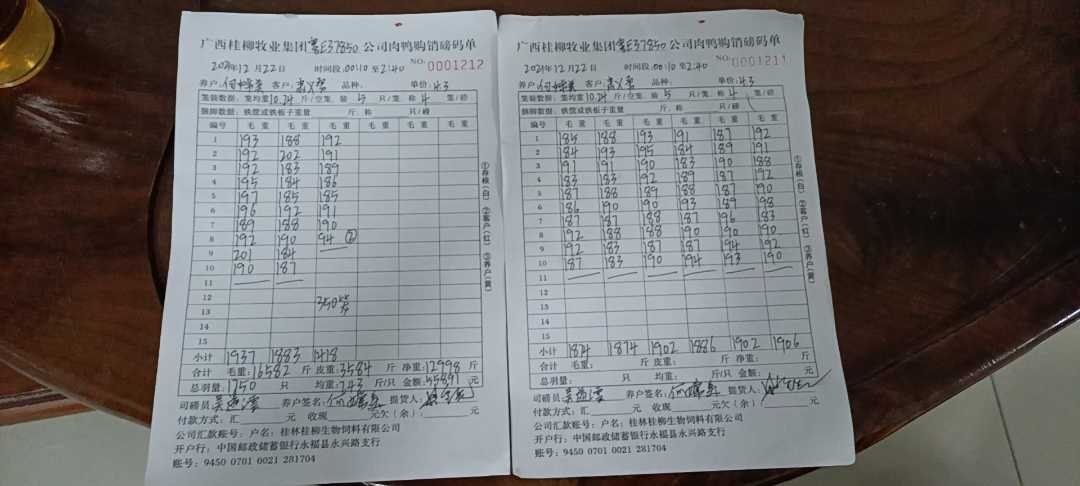 广西桂柳牧业集团粤E37850公司肉鸭购销磅码单
NO: 0001212
2021年12月22日 时间段:00:10至2:40
养户: 客户: 品种: 单价:4.3
笼装数据:笼均重10.24斤/空笼.装5只/笼.称4笼/磅
捆脚数据:铁筐或铁板子重量 斤.称 只/磅
编号 毛重 毛重 毛重 毛重 毛重 毛重
1 193 188 192
2 192 202 191
3 192 183 189
4 195 184 186
5 197 185 185
6 196 192 191
7 189 188 190
8 192 190 94 ②
9 201 184
10 190 187
11
12
13 350
14
15
小计 1937 1883 1418
合计 毛重:16582斤 皮重:3584斤 净重:12998斤
总羽量:1750只 均重:7.43斤/只 金额:55891元
司磅员 养户签名: 提货人:
付款方式:汇 元 收现 元欠(余): 元
公司汇款账号:户名:桂林桂柳生物饲料有限公司
开户行:中国邮政储蓄银行永福县永兴路支行
账号:9450 0701 0021 281704
①存根(白) ②客户(红) ③养户(黄)
广西桂柳牧业集团粤E37850公司肉鸭购销磅码单
NO: 0001211
2021年12月22日 时间段:00:10至2:40
养户: 客户: 品种: 单价:4.3
笼装数据:笼均重10.24斤/空笼.装5只/笼.称4笼/磅
捆脚数据:铁筐或铁板子重量 斤.称 只/磅
编号 毛重 毛重 毛重 毛重 毛重 毛重
1 185 188 193 191 187 192
2 184 193 195 184 189 191
3 191 191 190 183 190 188
4 183 183 192 189 187 192
5 187 188 189 188 187 190
6 186 190 190 193 189 198
7 189 187 188 187 196 183
8 192 188 188 190 190 190
9 192 183 187 187 194 192
10 187 183 190 194 193 190
11
12
13
14
15
小计 1874 1874 1902 1886 1902 1906
合计 毛重: 斤 皮重: 斤 净重: 斤
总羽量: 只 均重: 斤/只 金额: 元
司磅员 养户签名: 提货人:
付款方式:汇 元 收现 元欠(余): 元
公司汇款账号:户名:桂林桂柳生物饲料有限公司
开户行:中国邮政储蓄银行永福县永兴路支行
账号:9450 0701 0021 281704
①存根(白) ②客户(红) ③养户(黄)